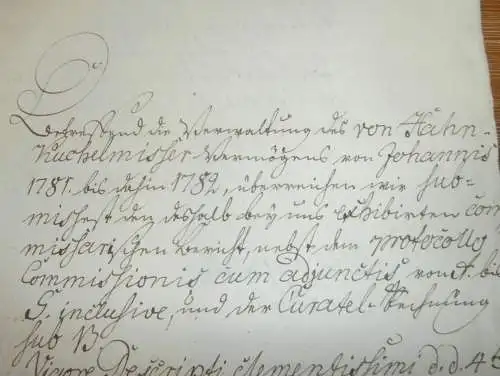 Betreffend die Verwaltung des von Hahn-
Kuchelmisser Vermögens von Johannis
1781. bis dahin 1782, überreichen wir sub-
missest den deshalb bey uns exhibirten com-
missarischen Bericht, nebst dem protocollo
Commissionis cum adjunctis von A. bis
S. inclusive, und der Curatel-Rechnung
sub B
Vigore Rescripti clementissimi d. d. 4t